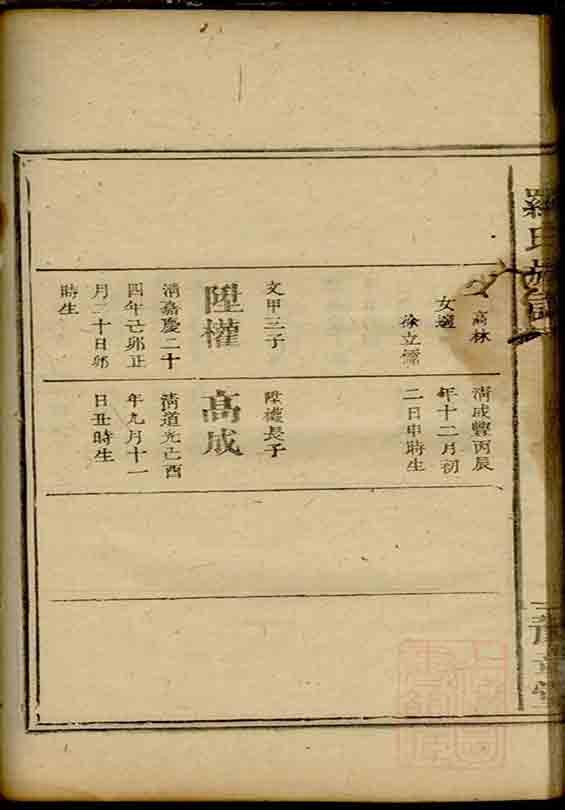 羅氏族譜
高林
女適
徐立儒
清咸豐丙辰
年十二月初
二日申時生
文甲三子
陞權
清嘉慶二十
四年己卯正
月二十日卯
時生
陞權長子
高成
清道光己酉
年九月十一
日丑時生